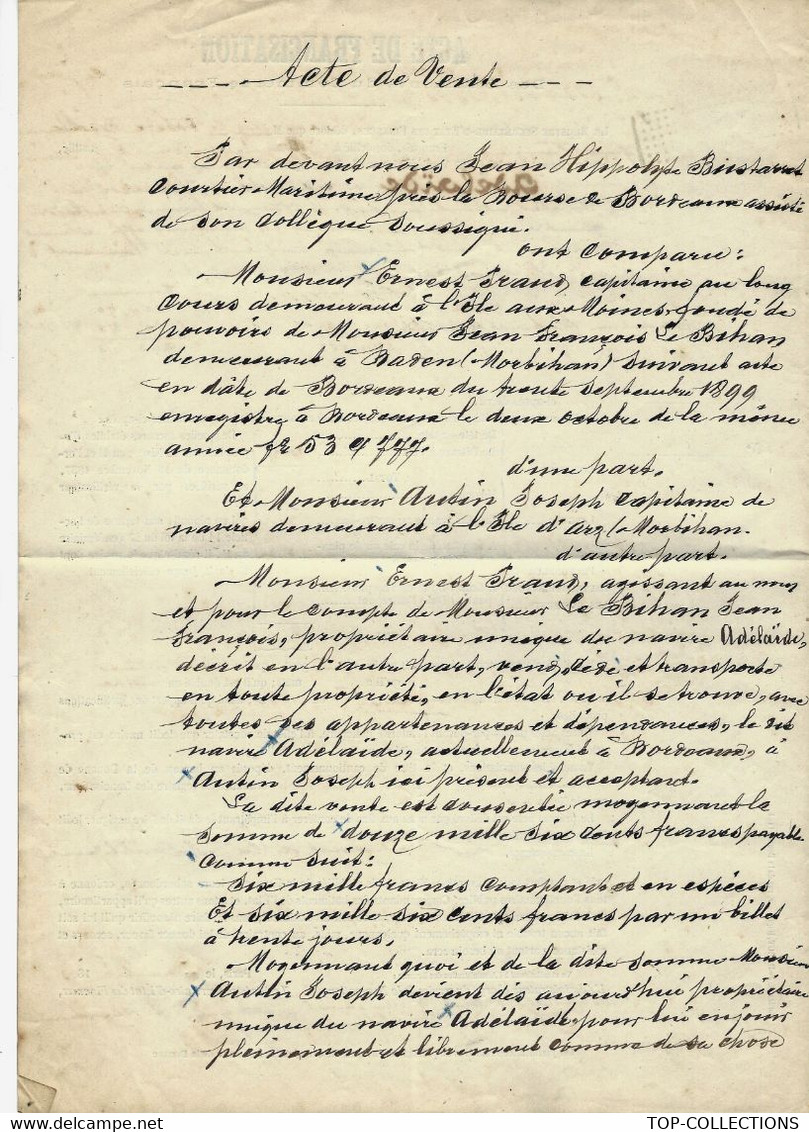 Acte de Vente
Par devant nous Jean Hippolyte Bustarret
Courtier Maritime près la Bourse de Bordeaux assisté
de son Collègue soussigné.
ont comparu:
Monsieur Ernest Fraud, capitaine au long
cours demeurant à l'Ile aux Moines, fondé de
pouvoirs de Monsieur Jean François Le Bihan
demeurant à Baden (Morbihan) suivant acte
en dâte de Bordeaux du trente septembre 1899
enregistré à Bordeaux le deux octobre de la même
année f° 53 c 777.
d'une part.
Et Monsieur Autin Joseph Capitaine de
navires demeurant à l'Ile d'Arz (Morbihan.
d'autre part.
Monsieur Ernest Fraud, agissant au nom
et pour le compte de Monsieur Le Bihan Jean
François, propriétaire unique du navire Adélaïde,
décrit en l'autre part, vend, cède et transporte
en toute propriété, en l'état où il se trouve, avec
toutes ses appartenances et dépendances, le dit
navire Adélaïde, actuellement à Bordeaux, à
Autin Joseph ici présent et acceptant.
La dite vente est consentie moyennant la
somme de douze mille six cents francs payable
comme suit:
Six mille francs comptant et en espèces
Et six mille six cents francs par un billet
à trente jours.
Moyennant quoi et de la dite somme Monsieur
Autin Joseph devient dès aujourd'hui propriétaire
unique du navire Adélaïde, pour lui en jouir
pleinement et librement comme de sa chose
TOP-COLLECTIONS